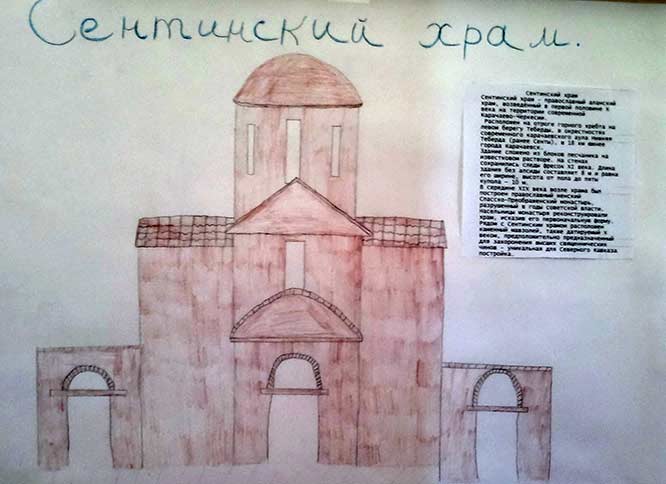 Сентинский храм.
Сентинский храм
Сентинский храм - православный аланский
храм, возведённый в первой половине X
века на территории современной
Карачаево-Черкесии.
Расположен на отроге горного хребта на
левом берегу Теберды, в окрестностях
современного карачаевского аула Нижняя
Теберда (ранее Сенты), в 18 км южнее
города Карачаевск.
Здание сложено из блоков песчаника на
известковом растворе, на стенах
сохранились следы фресок XI века. Длина
здания без апсиды составляет 8 м и равна
его ширине, высота от пола до пяты
купола - 10 м.
В середине XIX века возле храма был
построен православный женский
Спасско-Преображенский монастырь,
разрушенный в годы советской власти.
Насельницы монастыря реконструировали
храм, исказив его первоначальный вид.
Рядом с Сентинским храмом расположен
каменный мавзолей, также датируемый X
веком, предположительно предназначенный
для захоронения высших священнических
чинов - уникальная для Северного Кавказа
постройка.